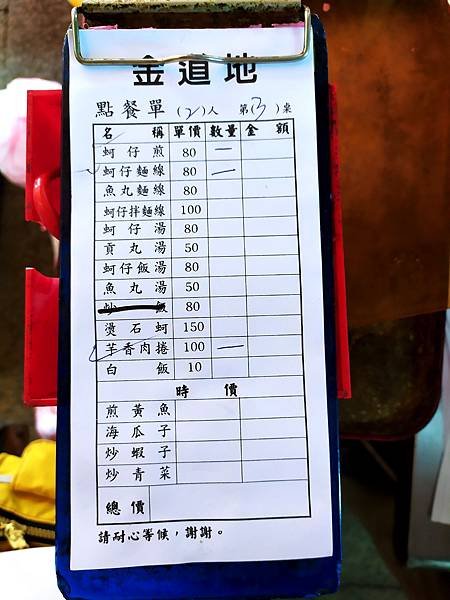 金道地
點餐單 (2)人 第(3)桌
名稱 單價 數量 金額
蚵仔煎 80 一
蚵仔麵線 80 一
魚丸麵線 80
蚵仔拌麵線 100
蚵仔湯 80
貢丸湯 50
蚵仔飯湯 80
魚丸湯 50
炒飯 80
燙石蚵 150
芋香肉捲 100 一
白飯 10
時價
煎黃魚
海瓜子
炒蝦子
炒青菜
總價
請耐心等候，謝謝。